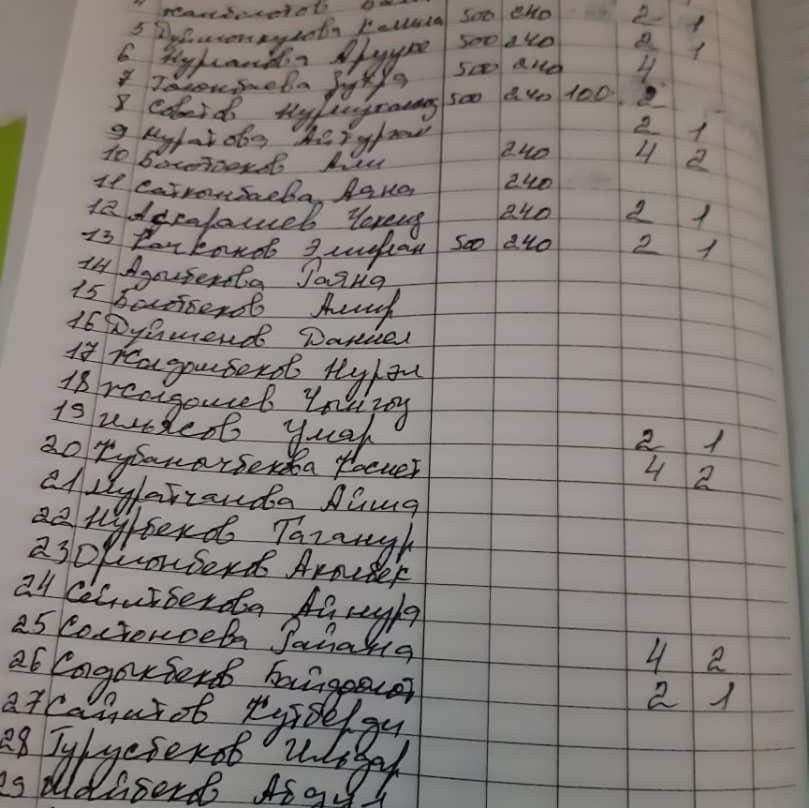 4
5 Дуйшонкулова Камила 500 240 2 1
6 Нурланова Арууке 500 240 2 1
7 Зухра 500 240 4
8 Советов Нурмухамед 500 240 100 2
9 Муратова 2 1
10 Болотбеков Али 240 4 2
11 Сатконбаева Аяна 240
12 Аскаралиев Чынгыз 240 2 1
13 500 240 2 1
14 Адылбекова Раяна
15 Болотбеков Амир
16 Дуйшенов Даниел
17 Жолдошбеков Нурэл
18 Жолдошев Чынгыз
19 Ильясов Умар 2 1
20 Кубанычбекова 4 2
21 Муратчанова Айша
22 Нурбеков Таганур
23 Ормонбеков Акылбек
24 Сейитбекова Айнура
25 Солтоноева 4 2
26 Сыдыкбеков Байдоолот 2 1
27 Сайитов Кутберди
28 Турусбеков Ильдар
29 Шайбеков